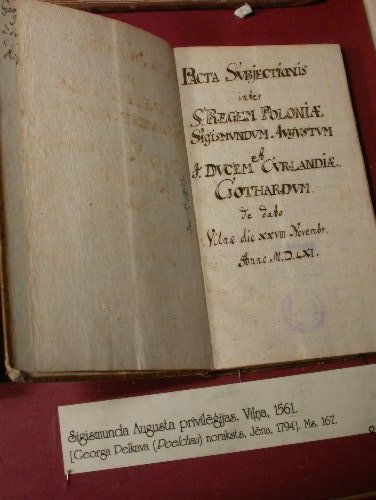 PACTA SUBJECTIONIS
inter
S. REGEM POLONIÆ
SIGISMUNDUM. AUGUSTUM
Et
I. DUCEM CURLANDIÆ.
GOTHARDUM
de dato
Vilnæ die XXVIII Novembr.
Anno M.D.LXI.
Sigismunda Augusta privilēģijas. Viļņa, 1561.
[Georga Pelkava (Poelchau) noraksts, Jēna, 1794]. Ms. 167.